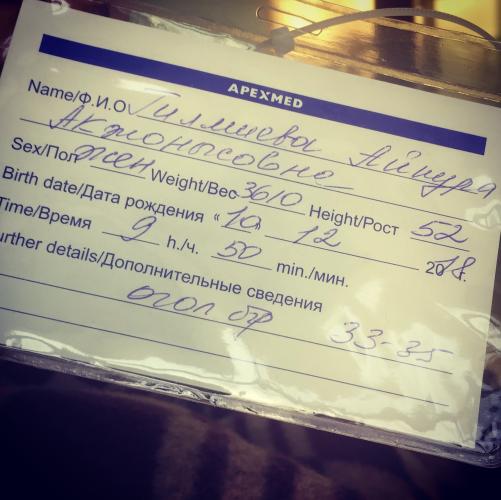 APEXMED
Name/Ф.И.О. Гилмиева Айнура
Акжонысовна
Sex/Пол жен Weight/Вес 3610 Height/Рост 52
Birth date/Дата рождения "10" 12 2018г.
Time/Время 9 h./ч. 50 min./мин.
urther details/Дополнительные сведения
окол гр 33-35